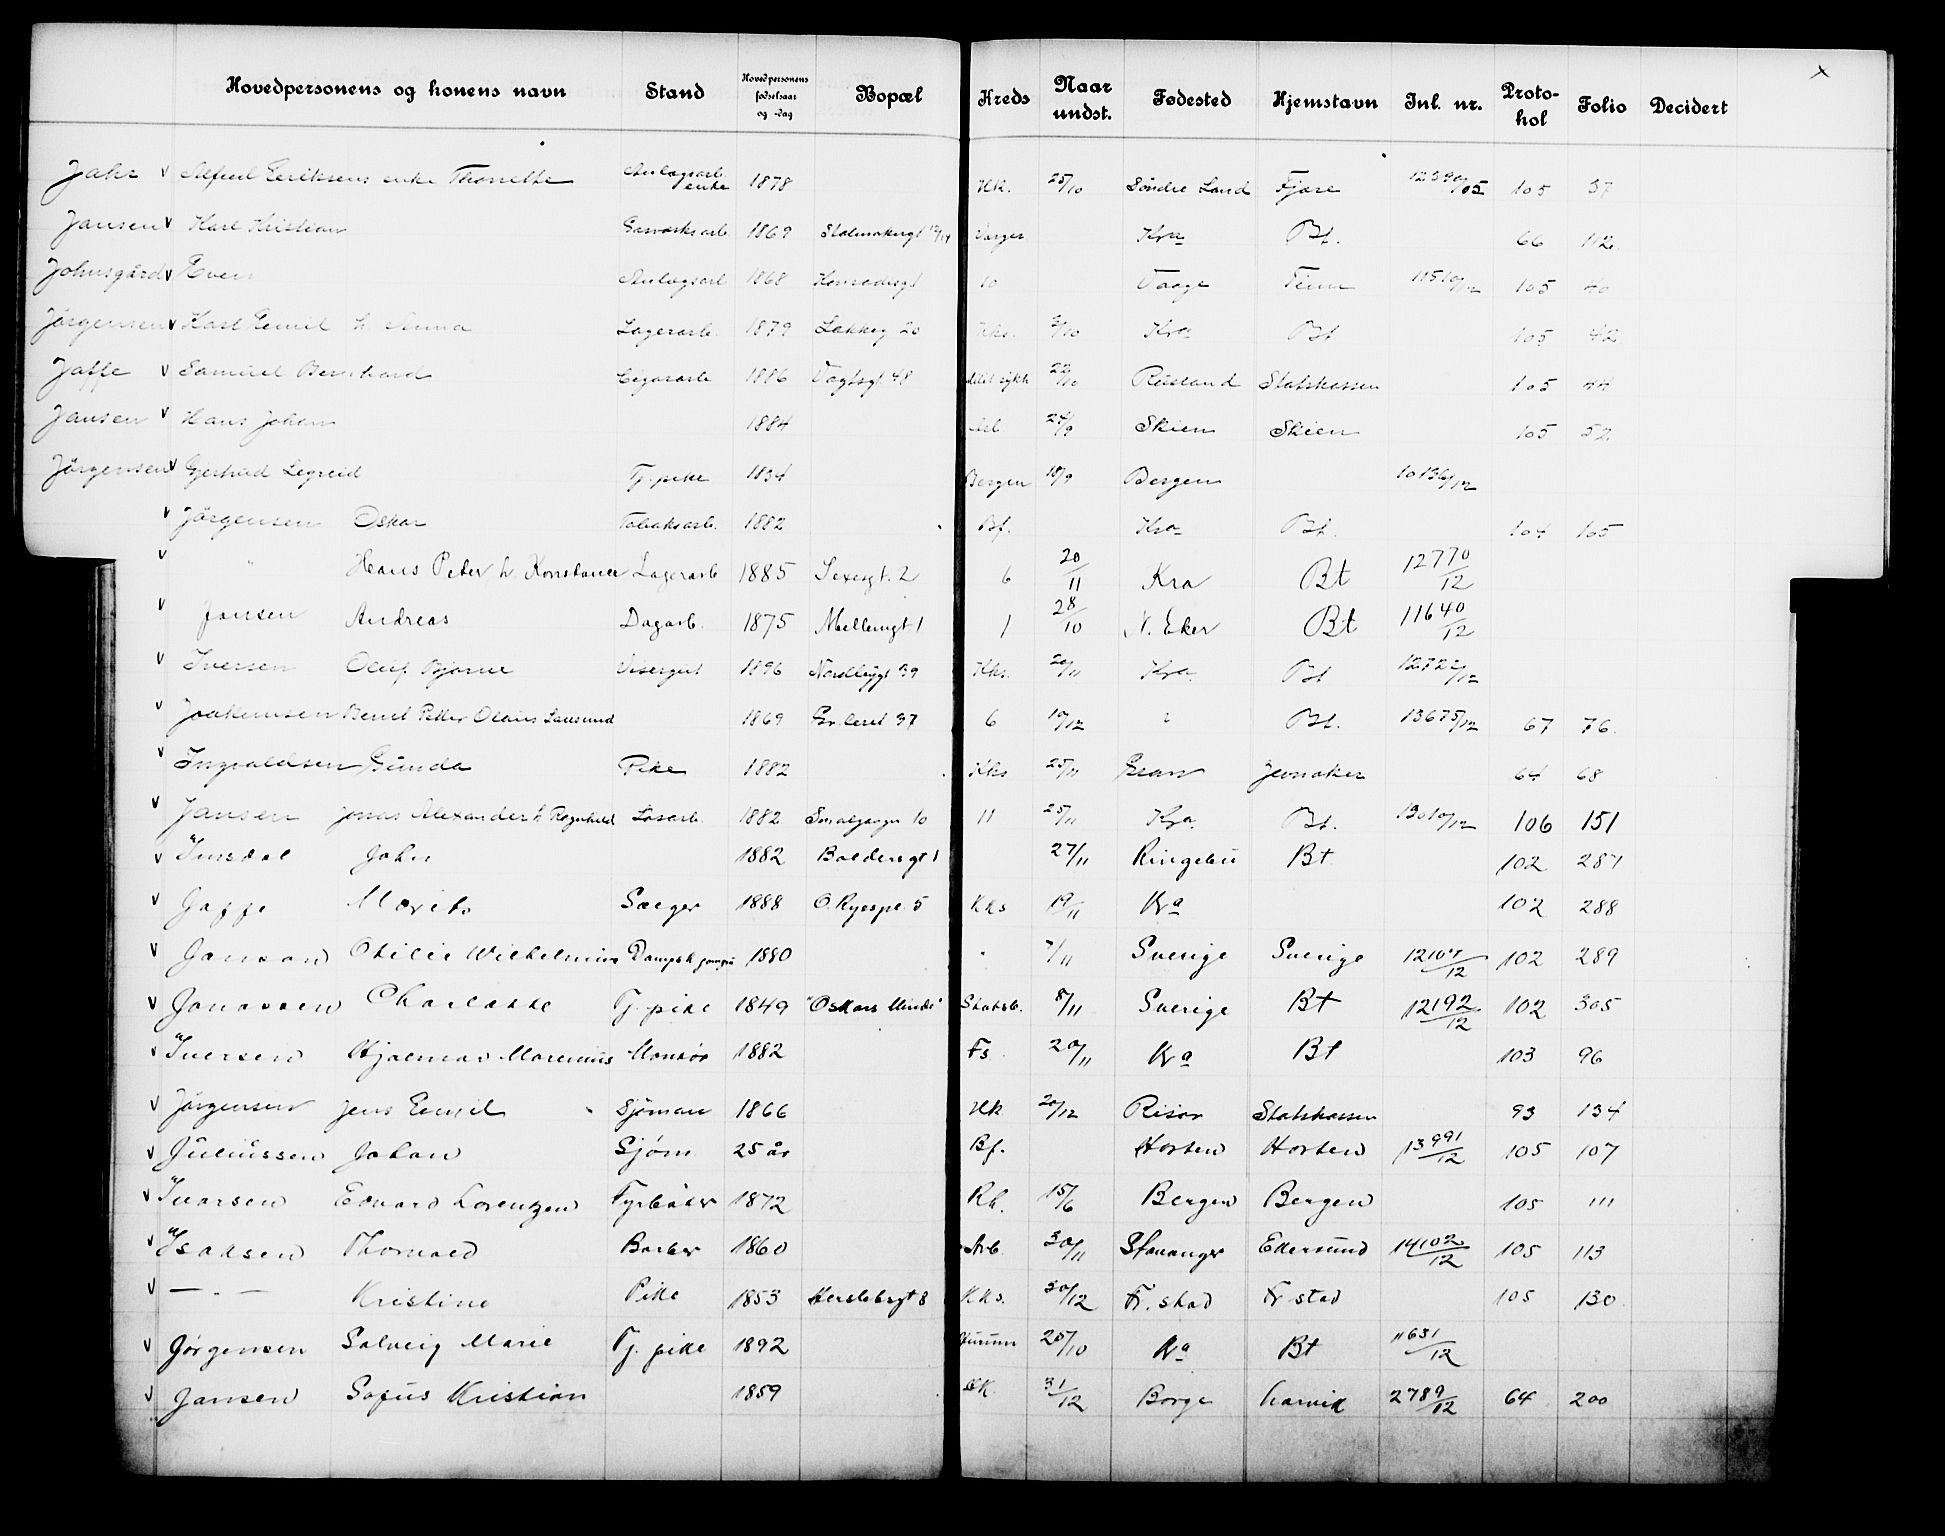 x
Hovedpersonens og konens navn Stand Hovedpersonens fødselsaar og -dag Bopæl Kreds Naar undst. Fødested Hjemstavn Inl. nr. Protokol Folio Decidert
Jahr v Alfred Eeriksens enke Thorvette Anlægsarb. enke 1878 Hk. 25/10 Søndre Land Fjære 12390/05 105 37
Jansen v Karl Kristian Gasværksarb. 1869 Stolmakergt 12/14 Varger Kra Bt. 66 112
Johnsgård v Even Anlægsarb 1868 Konradisgt 10 Vaage Tinn 11510/12 105 40
Jörgensen v Karl Emil h. Anna Lagerarb. 1879 Lakkeg 20 Kks. 2/10 Kra Bt 105 42
Jaffe v Samuel Bernhard Cigararb 1886 Vogtsgt 48 22/10 Rusland Statskassen 105 44
Jansen v Hans Johan 1884 Arb 24/9 Skien Skien 105 52
Jörgensen v Gjertrud Legreid Tj. pike 1834 Bergen 18/9 Bergen 10136/12
v Jörgensen Oskar Tobaksarb. 1882 Bf. Kra Bt. 104 165
v " Hans Peter h. Konstance Lagerarb 1885 Sexesgt. 2 6 20/11 Kra Bt 12770/12
v Jansen Andreas Dagarb. 1875 Møllemgt 1 1 28/10 N. Eker Bt 11640/12
v Iversen Oluf Bjarne Visergut 1896 Nordbygt 39 Kks. 20/11 Kra Bt 12722/12
v Joakimsen Bernt Petter Olaus Lausund 1869 Gr. leret 37 6 10/12 ? Bt. 13675/12 67 76.
v Ingvaldsen Gunda Pike 1882 Kks 25/11 Gran Jevnaker 64 68
v Jansen Jonas Alexander h. Ragnhild Løsarb. 1882 Smalgangn 10 11 25/11 Kra. Bt. 13010/12 106 151
v Imsdal John 1882 Baldersgt 1 27/11 Ringebu Bt 102 287
v Jaffe Morits Sælger 1888 O. Ryespl. 5 Kks 19/11 Kra 102 288
v Janson Otilie Wilhelmine Dampsk 1880 " 7/11 Sverige Sverige 12107/12 102 289
v Jonassen Charlotte Tj. pike 1849 "Oskars Minde" Statsb. 8/11 Sverige Bt 12192/12 102 305
v Iversen Hjalmar Marenius Montør 1882 Fs. 20/11 Kra Bt 103 96
v Jörgensen Jens Emil Sjömann 1866 Hk 20/12 Risør Statskassen 93 134
v Juliussen Johan Sjøm. 25 år Bf. Horten Horten 13991/12 105 107
v Ivarsen Edvard Lorentzen Fyrbøter 1872 Rh. 15/6 Bergen Bergen 105 111
v Isaksen Thorvald Barber 1860 Arb. 30/11 Stavanger Ekersund 14102/12 105 113
v — " — Kristine Pike 1853 Herslebsgt 8 Kks. 30/12 Fr. stad Fr stad 105 130.
v Jørgensen Solveig Marie Tj. pike 1892 Hurum 25/10 Kra Bt 11631/12
v Jansen Sofus Kristian 1859 31/12 Borge Larvik 2789/12 64 200